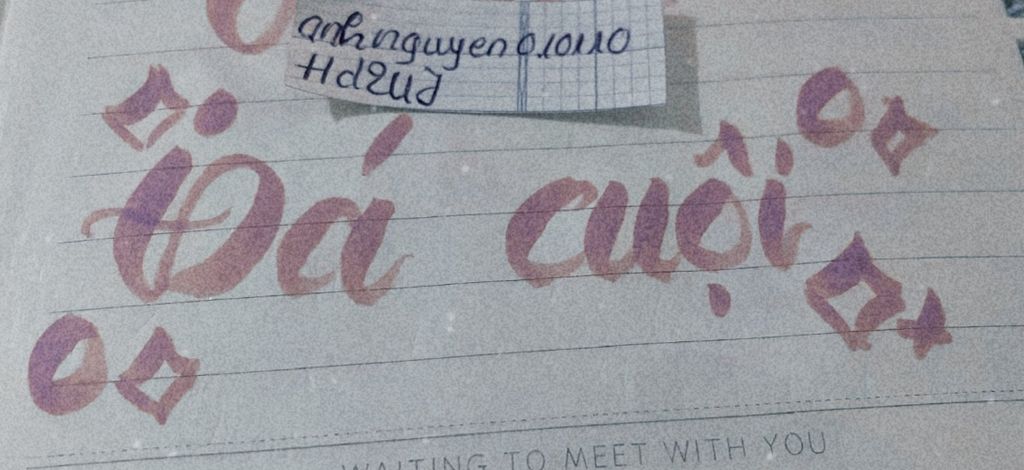 anhnguyen010110
Đá cuội
WAITING TO MEET WITH YOU